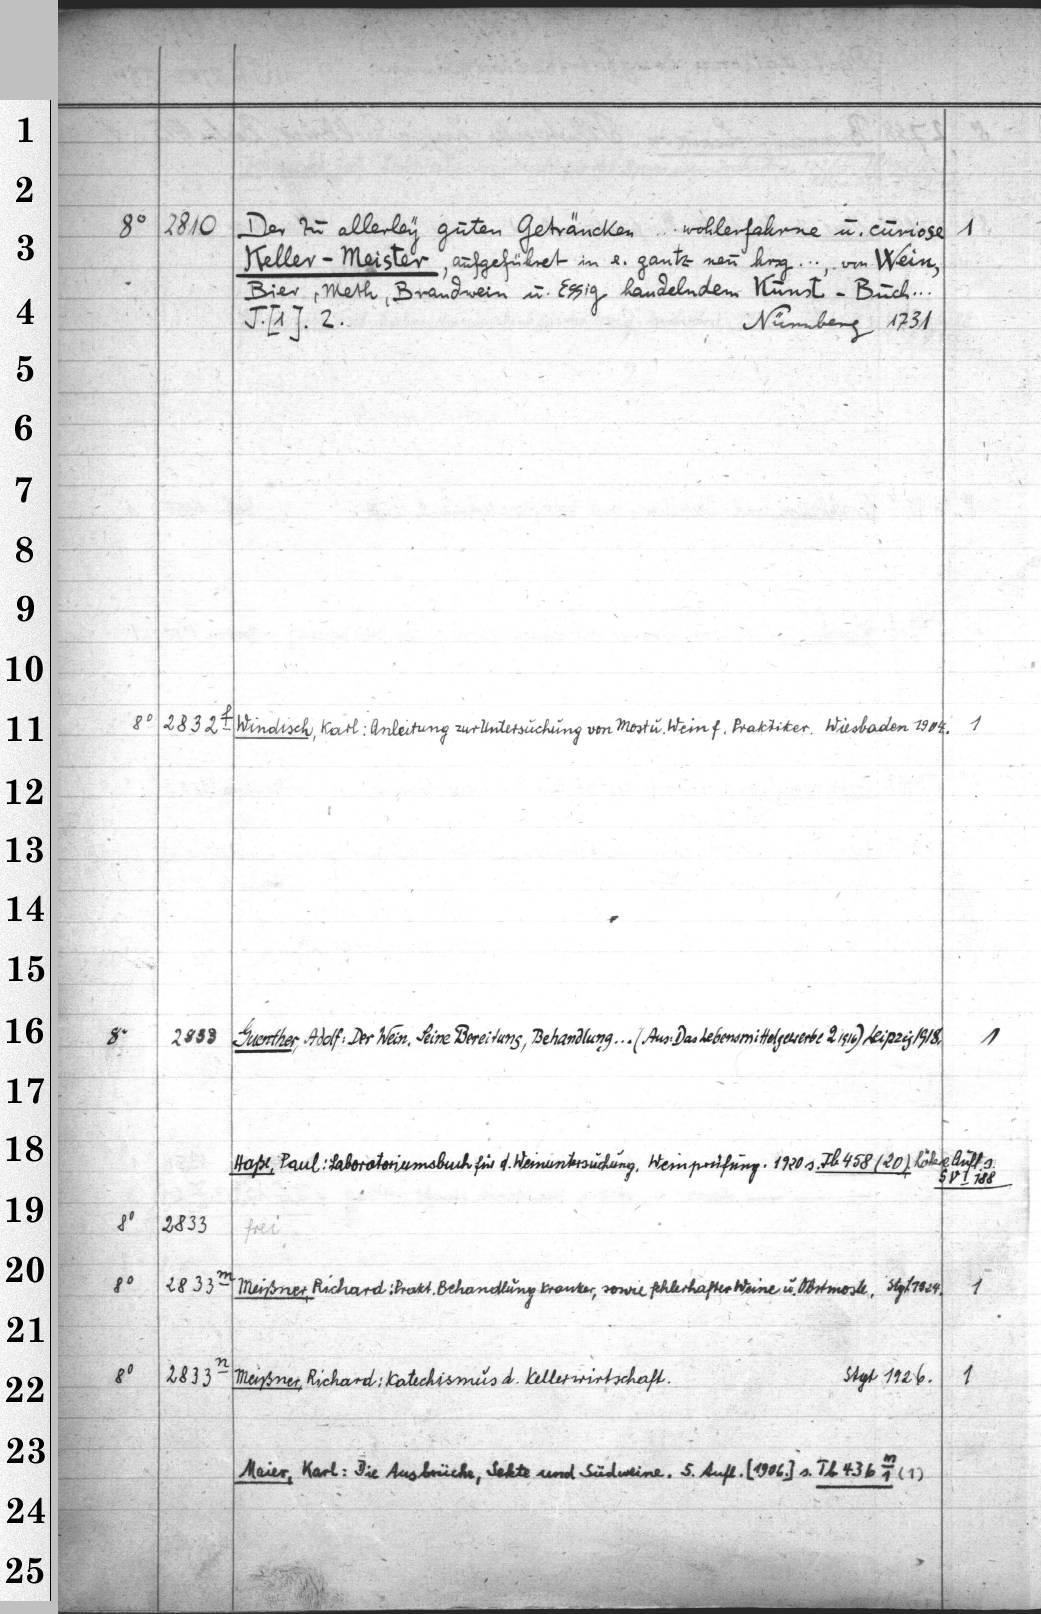 1
2
8° 2810 Der zu allerleÿ guten Geträncken ... wohlerfahrne u. curiose 1
3
Keller-Meister, aufgeführet in e. gantz neu hrsg..., von Wein,
Bier, Meth, Brandwein u. Essig handelndem Kunst-Buch...
4
T.[1]. 2. Nürnberg 1731
5
6
7
8
9
10
11
8° 2832 f Windisch, Karl: Anleitung zur Untersuchung von Most u. Wein f. Praktiker. Wiesbaden 1904. 1
12
13
14
15
16
8° 2833 Guenther, Adolf: Der Wein. Seine Bereitung, Behandlung... (Aus: Das Lebensmittelgewerbe 2 1916) Leipzig 1918. 1
17
18
Haße, Paul: Laboratoriumsbuch für d. Weinuntersuchung, Weinprüfung. 1920 s. Ib 458 (20)
188
19
8° 2833 frei
20
8° 2833 m Meißner, Richard: Prakt. Behandlung kranker, sowie fehlerhafter Weine u. Obstmoste. Stgt. 1924. 1
21
22
8° 2833 n Meißner, Richard: Katechismus d. Kellerwirtschaft. Stgt 1926. 1
23
Maier, Karl: Die Ausbrüche, Sekte und Südweine. 5. Aufl. [1906.] s. Tb 436 m/1 (1)
24
25